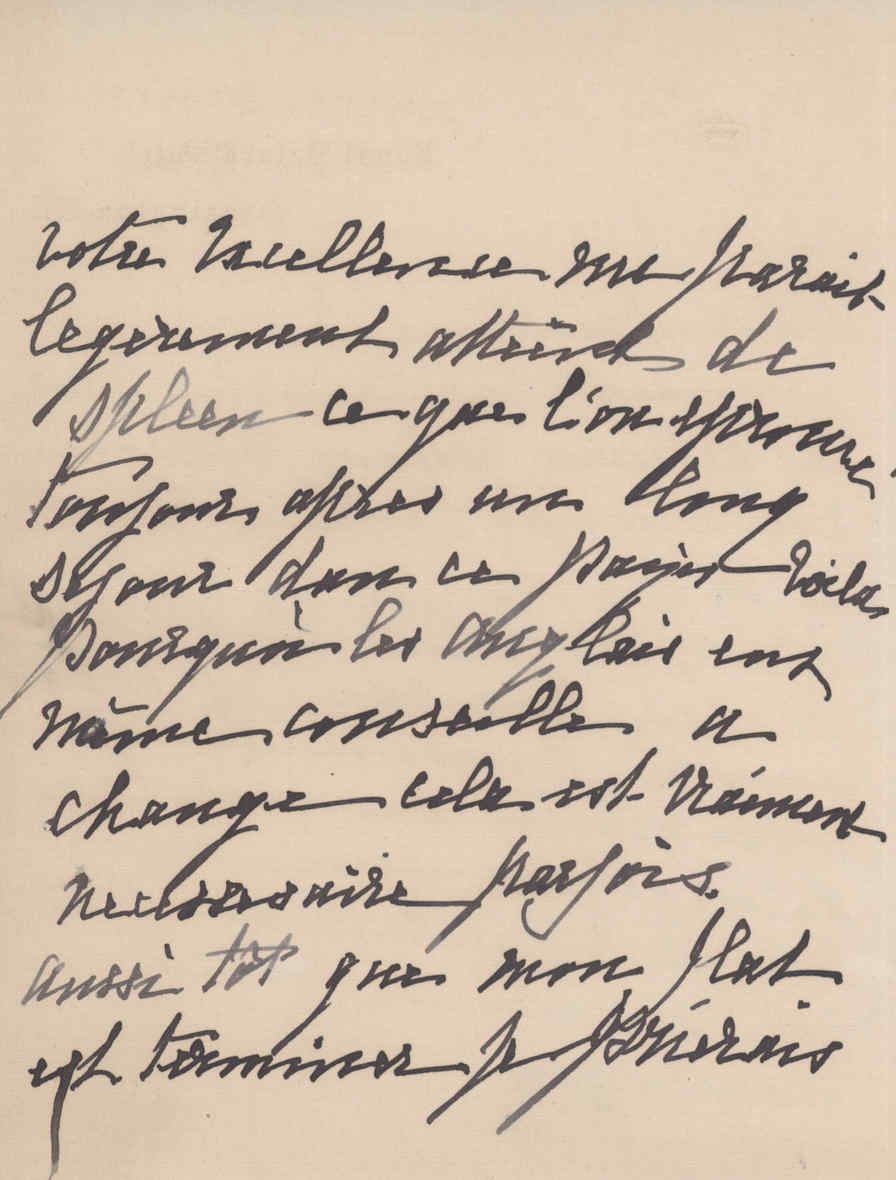 votre Excellence me parait
legèrement atteind de
spleen ce que l'on eprouve
toujours apres un long
sejour dans ce pays Voila
pourquoi les anglais ont
même conseille a
change cela est vraiment
necessaire parfois.
aussi tôt que mon plat
est terminer je prierais